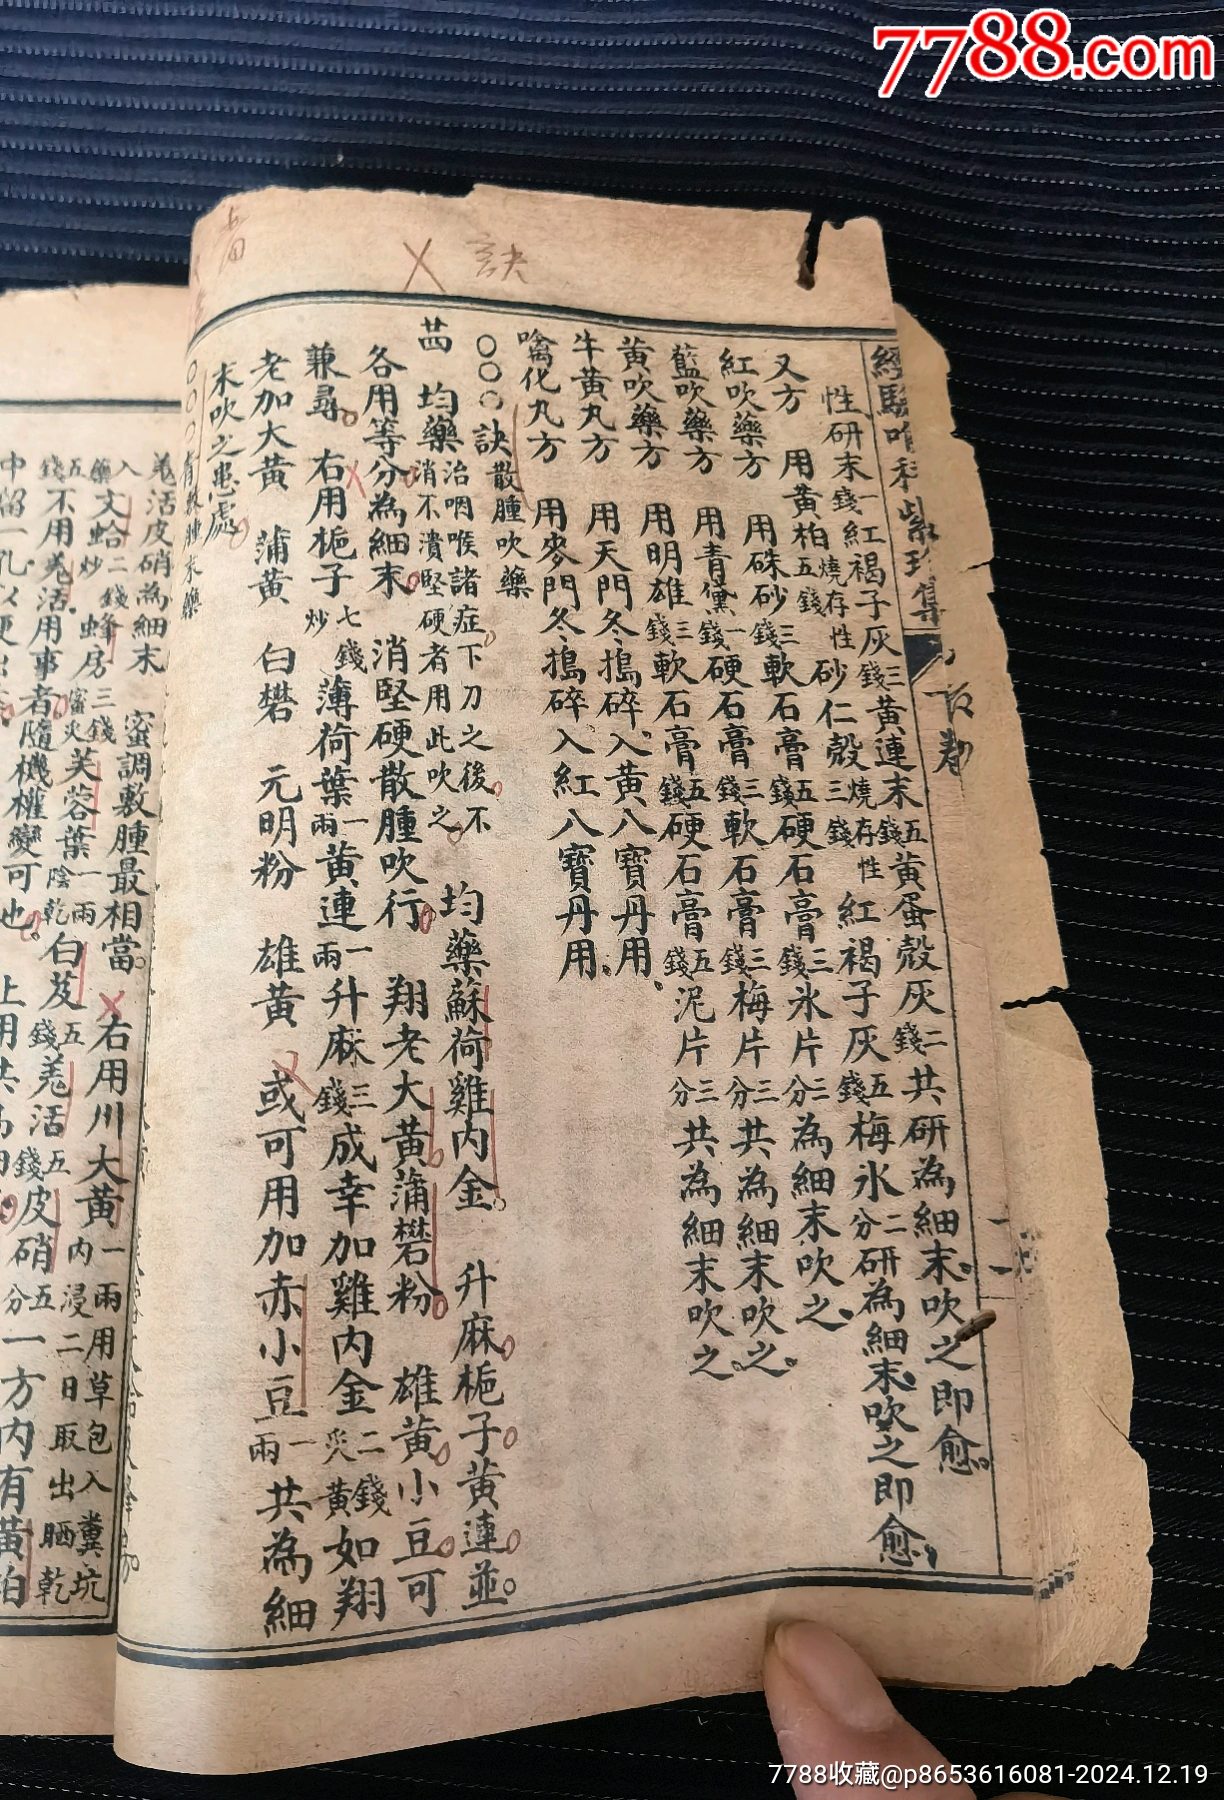 7788.com
訣
經驗咽科紫珍集
性研末一錢紅褐子灰三錢黃連末五錢黃蛋殼灰二錢共研為細末吹之即愈
又方 用黃柏五錢燒存性砂仁殼三錢燒存性紅褐子灰五錢梅氷二分研為細末吹之即愈
紅吹藥方 用硃砂三錢軟石膏五錢硬石膏三錢氷片二分為細末吹之
藍吹藥方 用青黛一錢硬石膏三錢軟石膏三錢梅片三分共為細末吹之
黃吹藥方 用明雄三錢軟石膏五錢硬石膏五錢泥片三分共為細末吹之
牛黃丸方 用天門冬搗碎入黃八寶丹用
噙化丸方 用麥門冬搗碎入紅八寶丹用
○○○訣散腫吹藥
均藥治咽喉諸症下刀之後不消不潰堅硬者用此吹之 均藥蘇荷雞內金 升麻梔子黃連並
各用等分為細末 消堅硬散腫吹行 翔老大黃蒲礬粉 雄黃小豆可
兼尋 右用梔子七錢炒薄荷葉一兩黃連一兩升麻三錢成幸加雞內金二錢炙黃如翔
老加大黃 蒲黃 白礬 元明粉 雄黃 或可用加赤小豆一兩共為細
末吹之患處
羗活皮硝為細末 蜜調敷腫最相當 右用川大黃一兩用草包入糞坑內浸二日取出晒乾
入藥文蛤二錢炒蜂房三錢芙蓉葉一兩陰乾白芨五錢羗活五錢皮硝五分一方內有黃柏
五錢不用羗活用事者隨機權變可也
7788收藏@p8653616081-2024.12.19